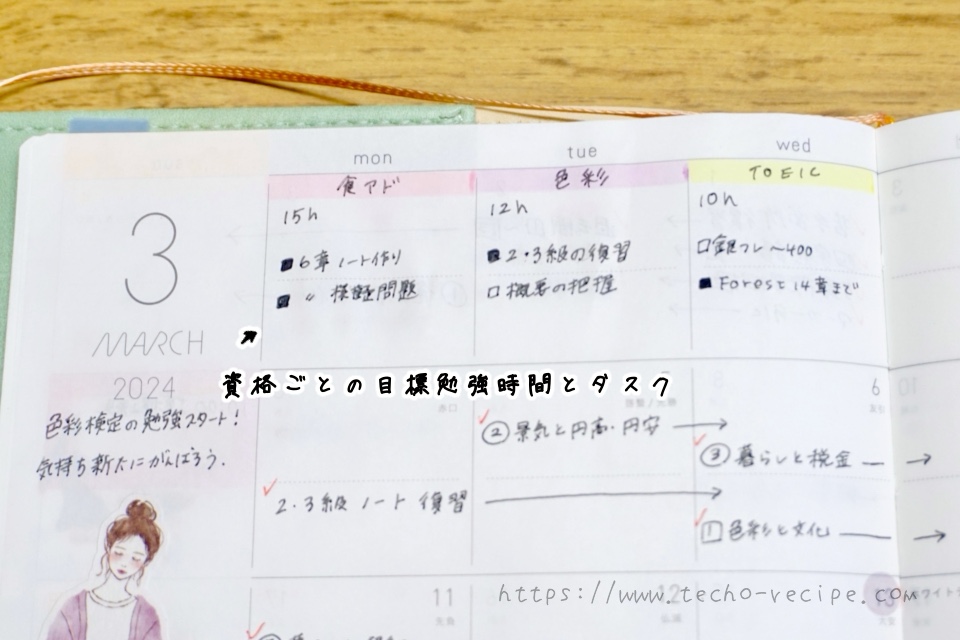 mon
tue
wed
食アド
色彩
TOEIC
3
MARCH
2024
15h
■6章ノート作り
■ 〃 模擬問題
12h
■2・3級の復習
□概要の把握
10h
□金フレ〜400
■Forest 14章まで
資格ごとの目標勉強時間とタスク
色彩検定の勉強スタート!
気持ち新たにがんばろう.
6
②景気と円高・円安 →
③暮らしと税金 →
2・3級 ノート 復習 →
1 色彩と文化 →
11
12
13
https://www.techo-recipe.com